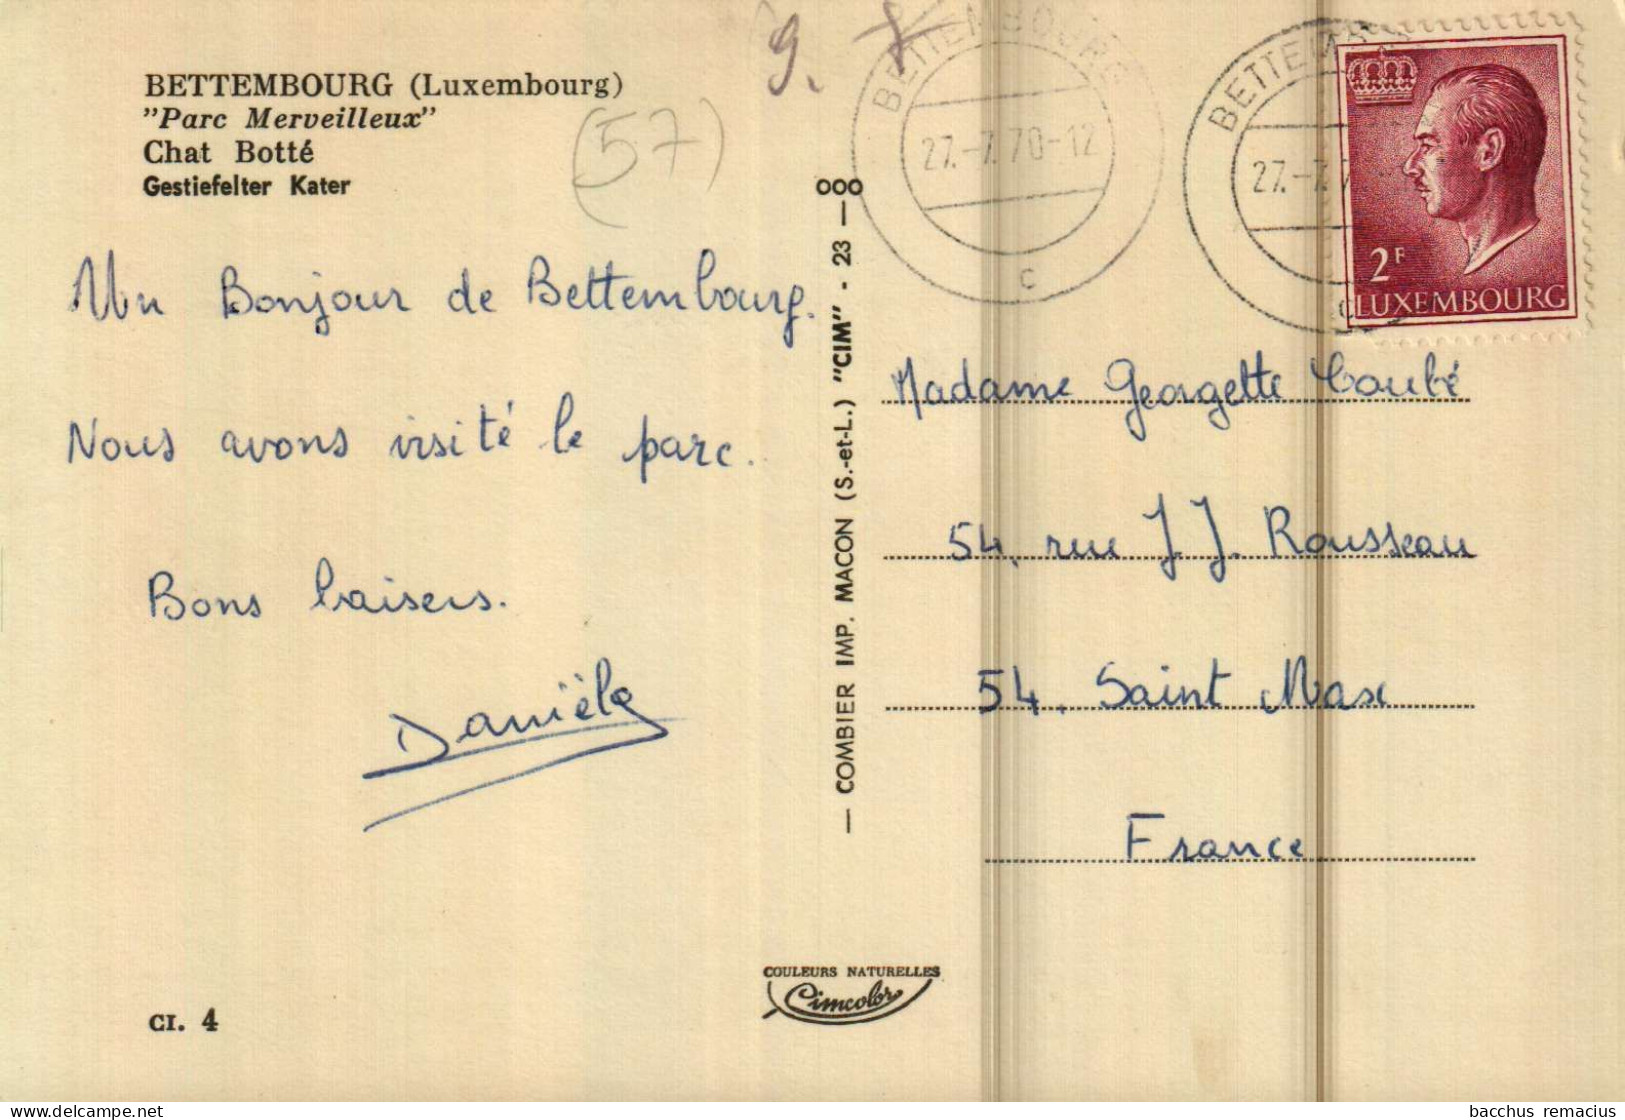 BETTEMBOURG (Luxembourg)
"Parc Merveilleux"
Chat Botté
Gestiefelter Kater
(57)
9.
BETTEMBOURG
27.-7.70-12
C
BETTEMB
27.-7.7
C
2F
LUXEMBOURG
Un Bonjour de Bettembourg.
Nous avons visité le parc.
Bons baisers.
Danièle
— COMBIER IMP. MACON (S.-et-L.) "CIM" - 23 — 000
Madame Georgette Coubé
54, rue J.J. Rousseau
54. Saint Max
France
COULEURS NATURELLES
Cimcolor
CI. 4
bacchus remacius